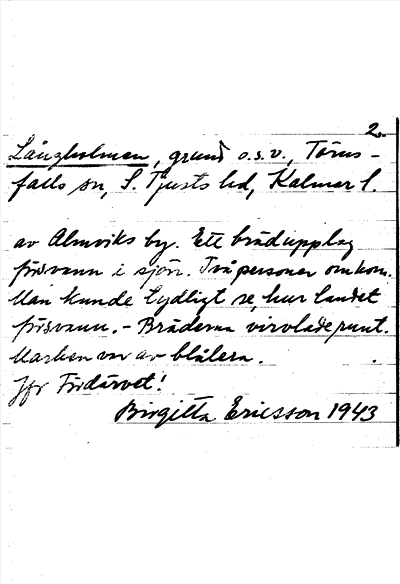 2.
Långholmen, grund o.s.v., Törns-
falls sn, S. Tjusts hd, Kalmar l.
av Almviks by. Ett brädupplag
försvann i sjön. Två personer omkom.
Man kunde tydligt se, hur landet
försvann. - Bräderna virvlade runt.
Marken var av blålera.
Jfr Fördärvet!
Birgitta Ericsson 1943